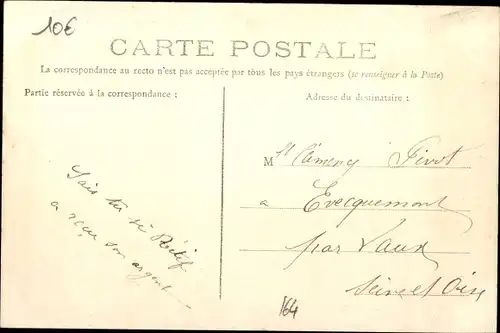 10€
CARTE POSTALE
La correspondance au recto n'est pas acceptée par tous les pays étrangers (se renseigner à la Poste)
Partie réservée à la correspondance :
Adresse du destinataire :
M
à Evecquemont
par Vaux
Seine et Oise
Sais tu si
a reçu son argent
164